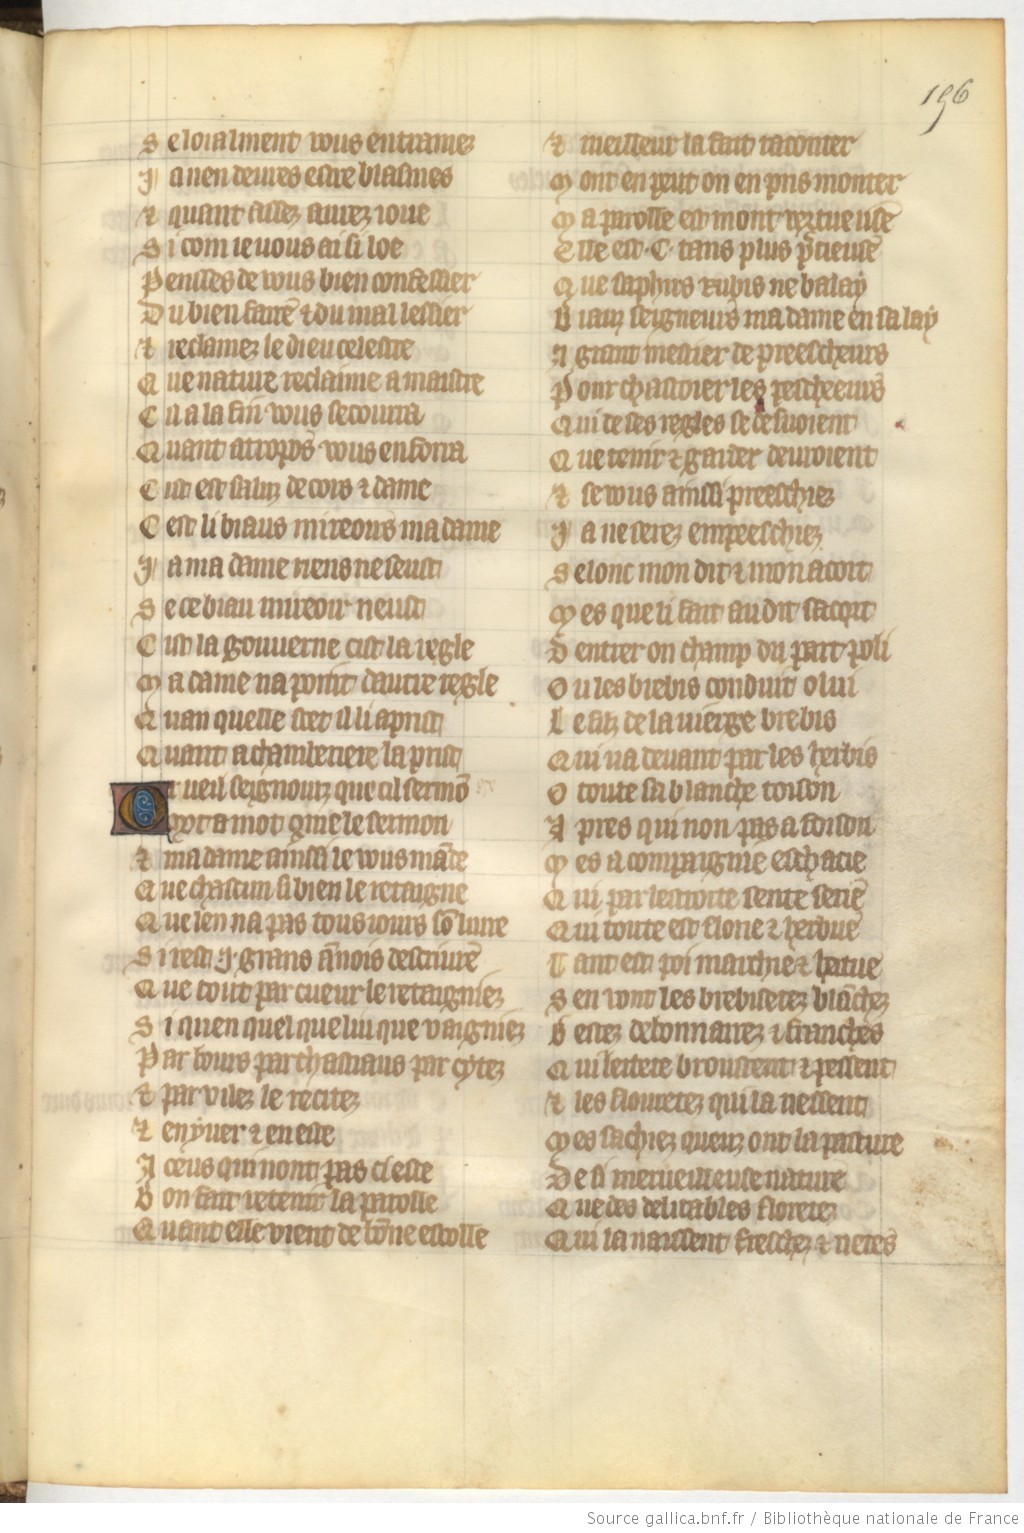 196
S e loialment vous entramez
J a nen devres estre blasmes
Et quant assez aurez ioue
S i com ie vous ai si loe
P ensses de vous bien confessier
D u bien faire et du mal lessier
Et reclamez le dieu celestre
Q ue nature reclaime a maistre
C il a la fin vous secourra
Q uant atropos vous enforra
C ist est saluz de cors et dame
C est li biaus mireours ma dame
J a ma dame riens ne seust
S e ce biau mireoir neust
C ist la gouverne cist la regle
M a dame na point dautre regle
Q uan quelle scet il li aprist
Q uant a chamberiere la prist
O r ueil seignourz que cil sermo
Mot a mot qme le sermon
Et ma dame ainssi le vous mande
Q ue chascun si bien le retaigne
Q ue len na pas tous iours so liure
S i rest .J. grans anois descriure
Q ue tout par cueur le retaigniez
S i quen quel que liu que vaigniez
P ar bours par chastiaus par cytez
Et par vilez le recitez
Et en yver et en este
A ceus qui nont pas ci este
B on fait retenir la parolle
Q uant elle vient de bone escolle
Et meilleur la fait raconter
M ont en peut on en pris monter
M a parolle est mont vertueuse
E lle est .C. tans plus precieuse
Q ue saphirs rubis ne balay
B iaux seigneurs ma dame en sa lay
A grant mestier de preescheurs
P our chastoier les pescheeurs
Q ui de ses regles se desuoient
Q ue tenir et garder devroient
Et se vous ainssi preeschiez
J a ne serez empeeschiez
S elonc mon dit et mon acort
M es que li fait au dit sacort
D entrer ou champ du part ioli
O u les brebis conduit o lui
L e filz de la vierge brebis
Q ui va devant par les herbis
O toute sa blanche toison
A pres qui non pas a foison
M es a compaignie escharie
Q ui par lestroite sente serie
Q ui toute est florie et herbue
T ant est poi marchie et batue
S en vont les brebisetez blanchez
B estez debonnairez et franches
Q ui lerbete broustent et pessent
Et les flouretez qui la nessent
M es sachiez quelz ont la pasture
D e si merveilleuse nature
Q ue des delitables floretez
Q ui la naissent freschez et netes
Source gallica.bnf.fr / Bibliothèque nationale de France